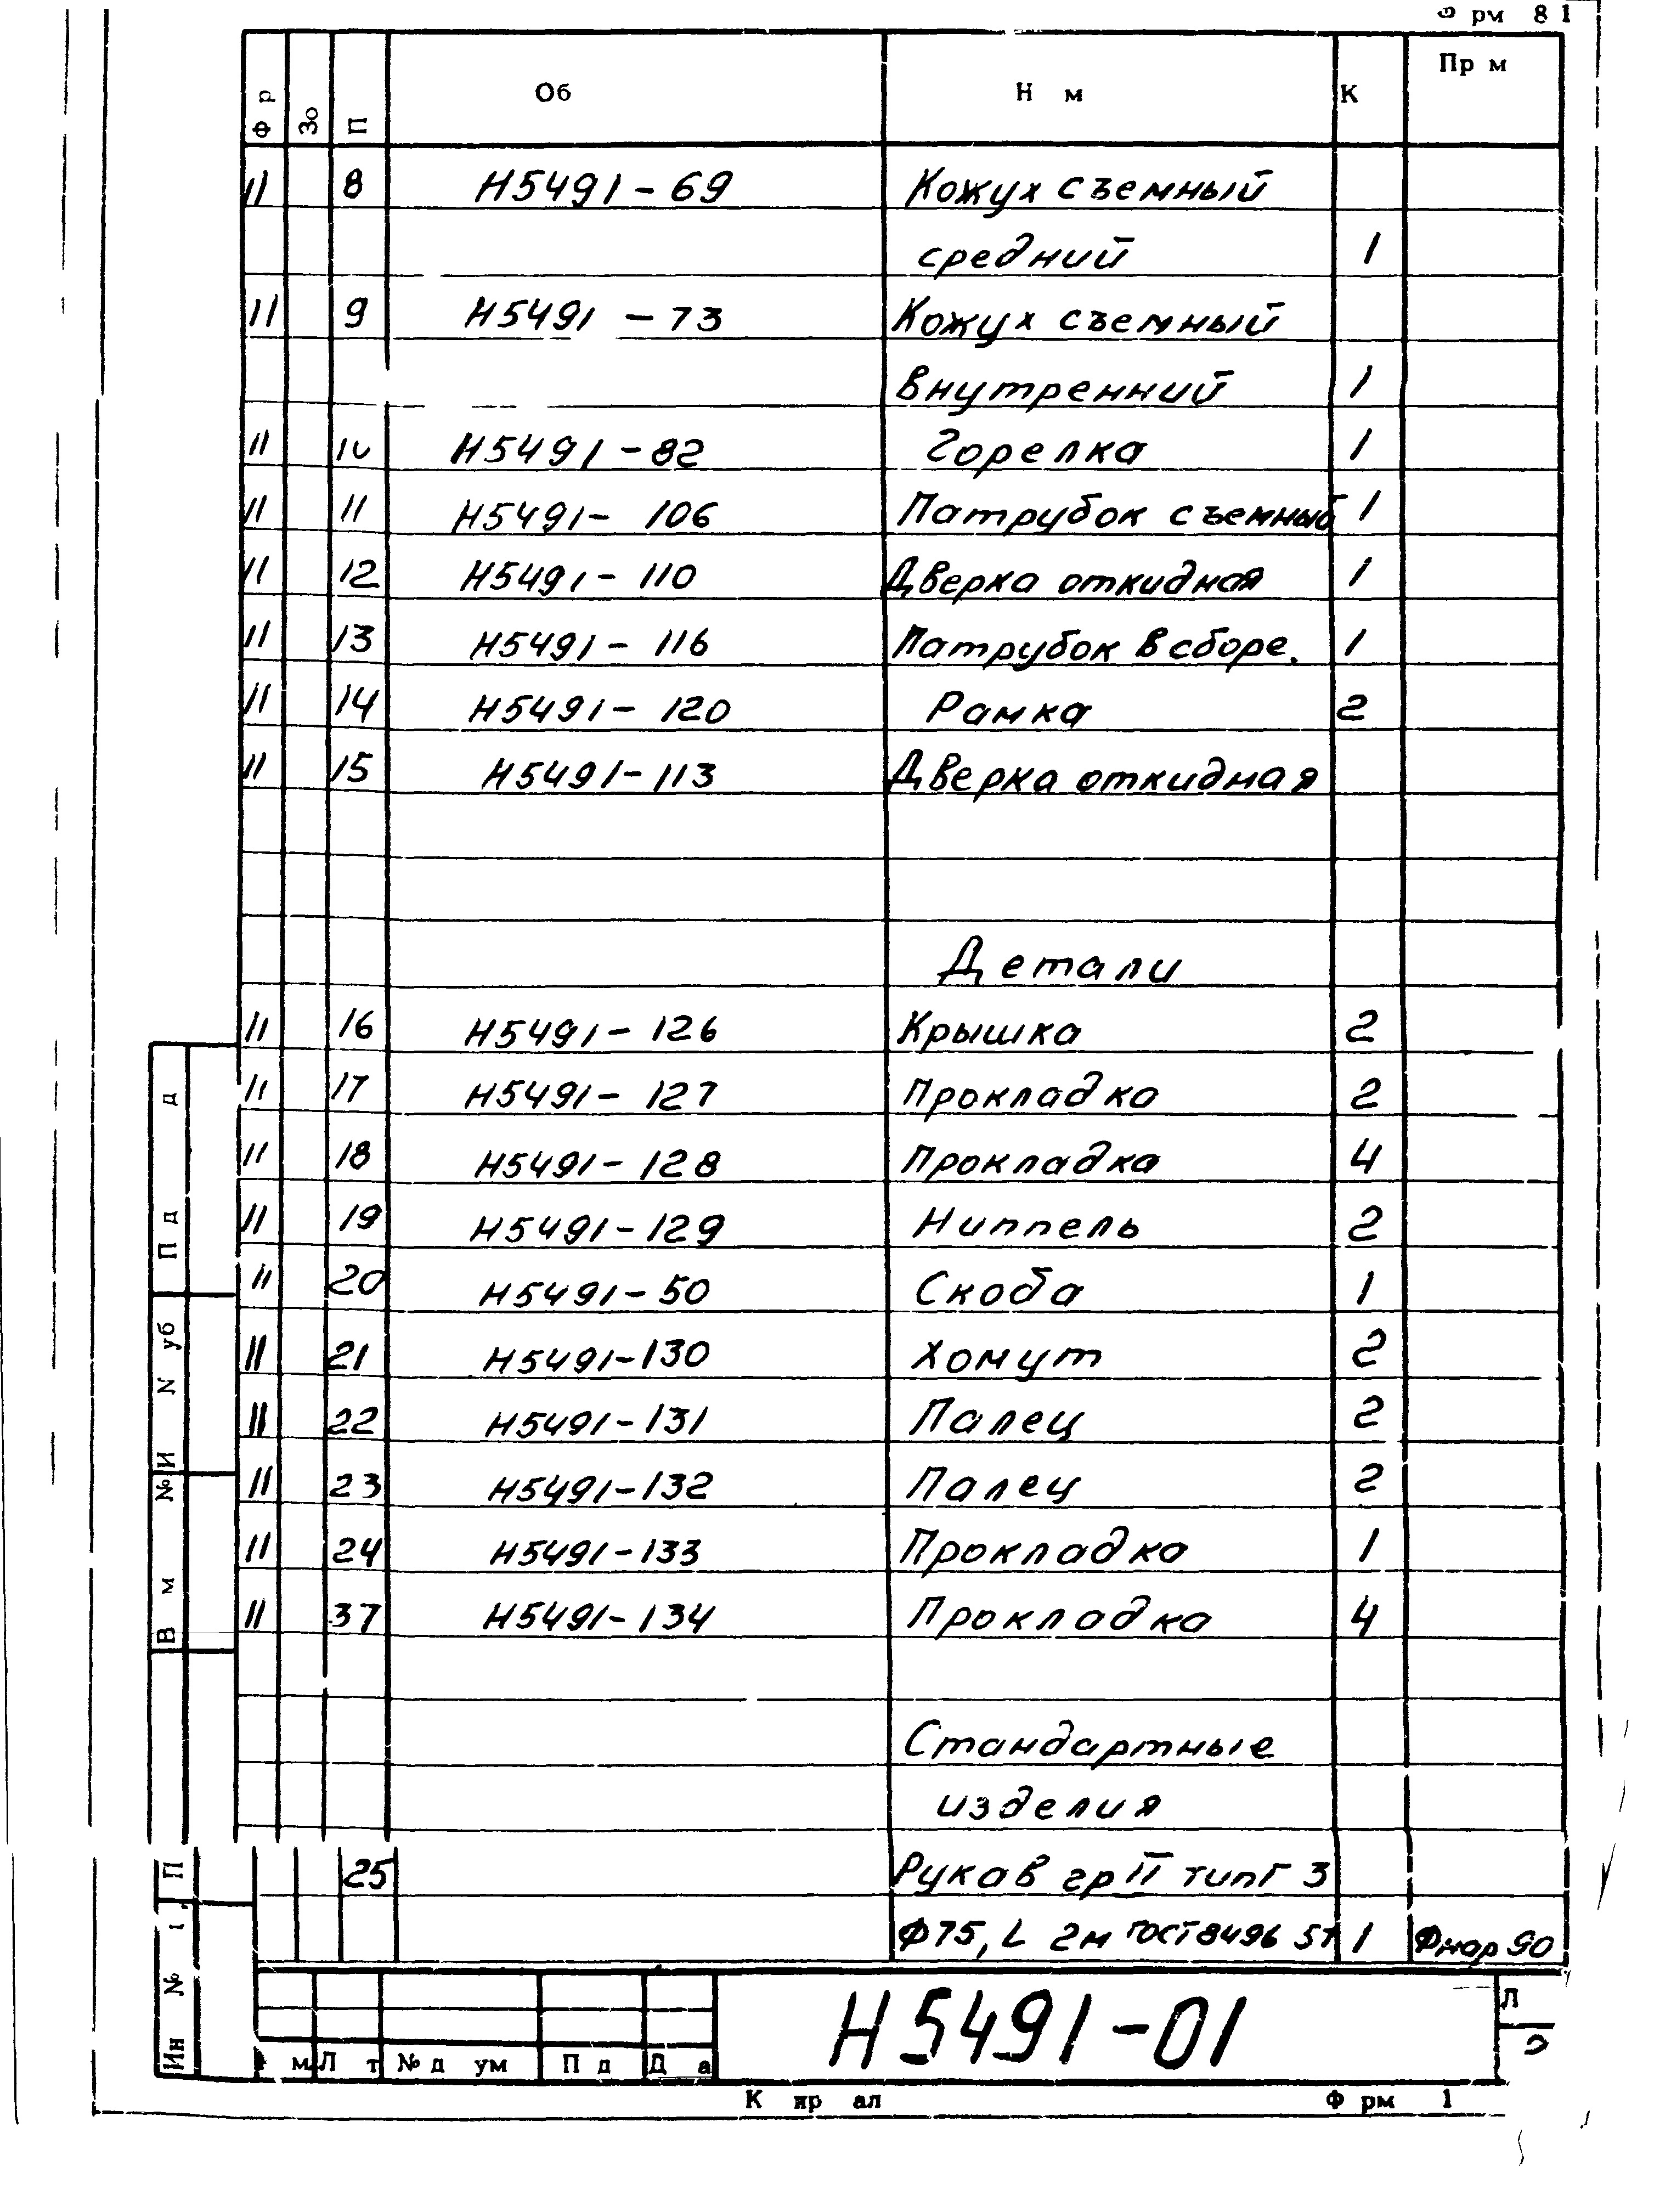 рм 81
Ф р Зо П Об Н м К Пр м
11 8 Н5491-69 Кожух съемный
средний 1
11 9 Н5491-73 Кожух съемный
внутренний 1
11 10 Н5491-82 Горелка 1
11 11 Н5491-106 Патрубок съемный 1
11 12 Н5491-110 Дверка откидная 1
11 13 Н5491-116 Патрубок в сборе. 1
11 14 Н5491-120 Рамка 2
11 15 Н5491-113 Дверка откидная
Детали
11 16 Н5491-126 Крышка 2
11 17 Н5491-127 Прокладка 2
11 18 Н5491-128 Прокладка 4
11 19 Н5491-129 Ниппель 2
11 20 Н5491-50 Скоба 1
11 21 Н5491-130 Хомут 2
11 22 Н5491-131 Палец 2
11 23 Н5491-132 Палец 2
11 24 Н5491-133 Прокладка 1
11 37 Н5491-134 Прокладка 4
Стандартные
изделия
25 Рукав гр II тип Г 3
Ф75, L 2м ГОСТ 8496 57 1 Фнар 90
П д д
И N уб
В м №
Ин № 1 П
м Л т № д ум П д Д а
Н5491-01
Л
К ир ал Ф рм 1